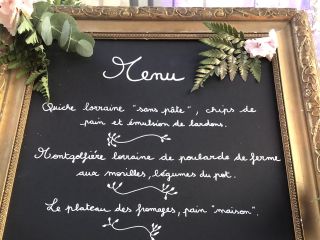 Menu
Quiche lorraine "sans pâte", chips de
pain et émulsion de lardons.
Montgolfière lorraine de poularde de ferme
aux morilles, légumes du pot.
Le plateau des fromages, pain "maison".